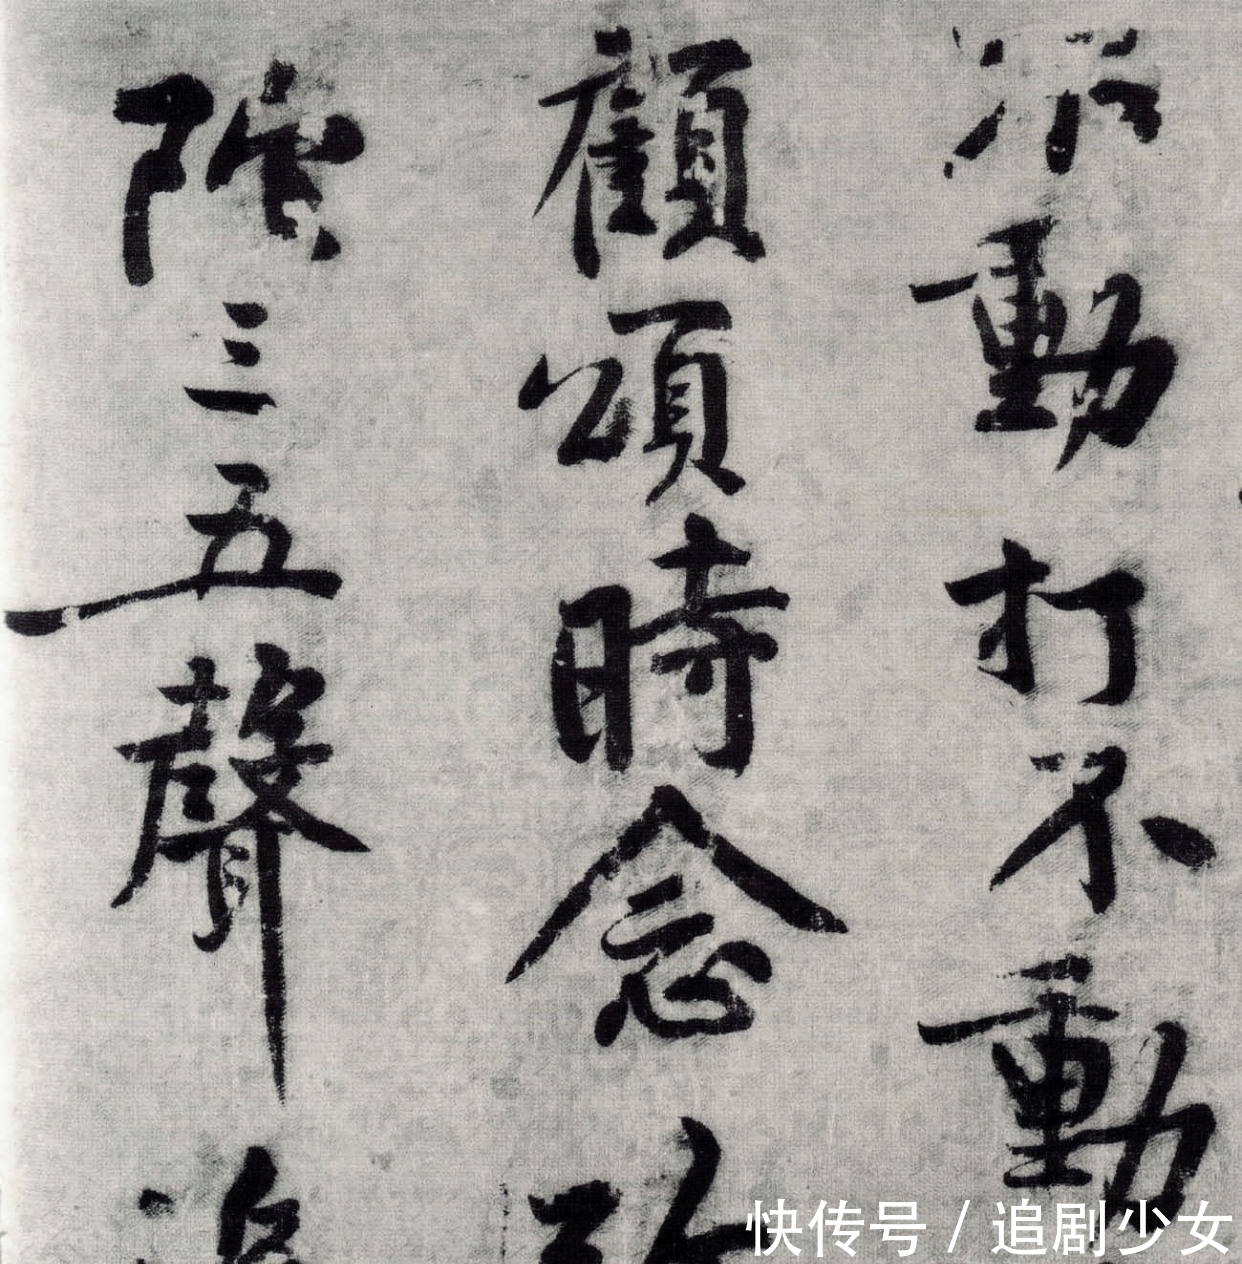 動打不動
顧頌時念
陀三五聲
快传号/追剧少女